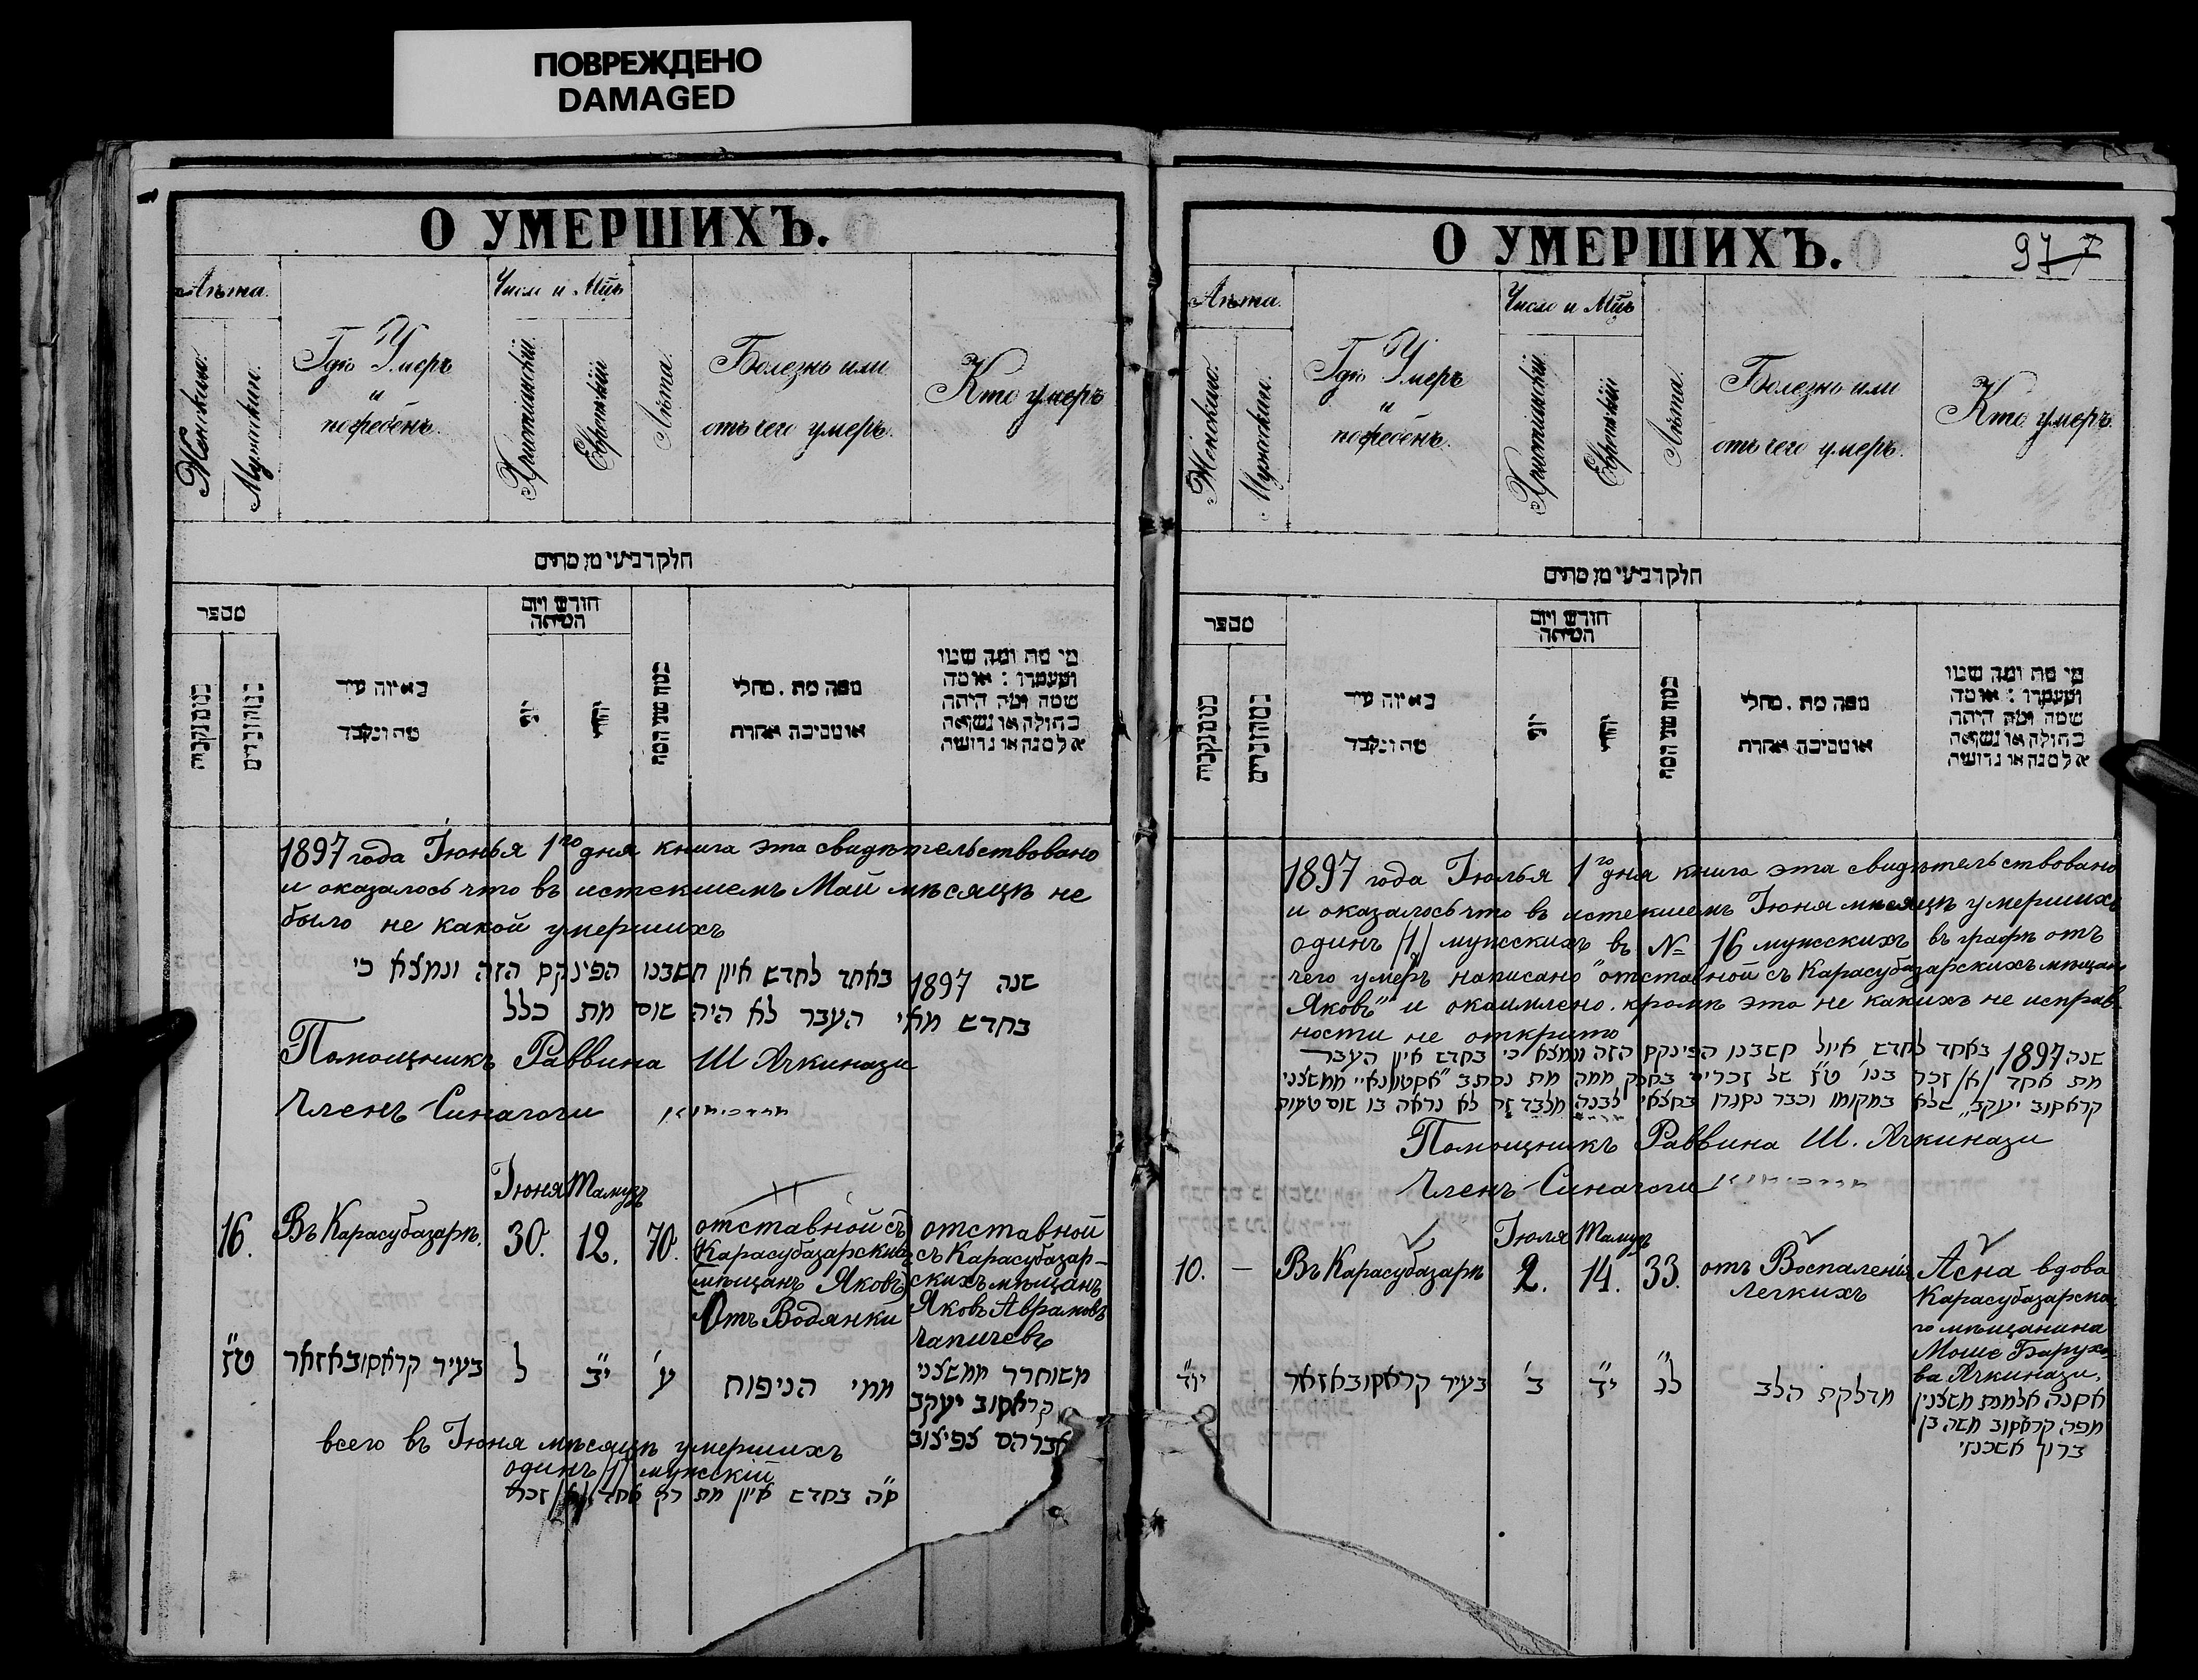 ПОВРЕЖДЕНО
DAMAGED
О УМЕРШИХЪ.
Лѣта.
Числ и Мцъ
Женскихъ.
Мужскихъ.
Гдѣ Умеръ
и
погребенъ.
Христіанскій.
Еврейскій
Лѣта.
Болезнь или
отъ чего умеръ.
Кто умеръ
חלק רביעי מן מתים
מספר
חודש ויום
המיתה
באיזה עיר
מת ונקבר
יוני
יהודי
ממה מת . מחלי
או מסיבה אחרת
מי מת ומה שמו
ומעמדו : או מה
שמה ומה היתה
בתולה או נשואה
אלמנה או גרושה
1897 года Іюнья 1го дня книга эта свидѣтельствовано
и оказалось что въ истекшемъ Май мѣсяцѣ не
было не какой умершихъ
שנה 1897 באחד לחדש איון חשבנו הפינקס הזה ונמצא כי
בחדש מאי העבר לא היה שום מת כלל
Помощникъ Раввина Ш Ачкинази
Членъ Синагоги
Іюня Тамузъ
16. Въ Карасубазарѣ. 30. 12. 70.
отставной съ
Карасубазарскихъ
мѣщанъ Яковъ
Отъ Водянки
отставной
съ Карасубазар-
скихъ мѣщанъ
Яковъ Аврамовъ
Чапичевъ
ט"ז בעיר קראסובאזאר ל י"ב ע' ממי הניפוח
משוחרר ממשצני
קראסוב יעקב
אברהם צפיצוב
всего въ Іюня мѣсяцѣ умершихъ
одинъ /1/ мужскій
ס"ה בחדש איון מת רק אחד /א/ זכר
О УМЕРШИХЪ.
97
Лѣта.
Число и Мцъ
Женскихъ.
Мужскихъ.
Гдѣ Умеръ
и
погребенъ.
Христіанскій.
Еврейскій
Лѣта.
Болезнь или
отъ чего умеръ.
Кто умеръ.
חלק רביעי מן מתים
מספר
חודש ויום
המיתה
באיזה עיר
מת ונקבר
יוני
יהודי
ממה מת . מחלי
או מסיבה אחרת
מי מת ומה שמו
ומעמדו : או מה
שמה ומה היתה
בתולה או נשואה
אלמנה או גרושה
1897 года Іюлья 1го дня книга эта свидѣтельствовано
и оказалось что въ истекшемъ Іюня мѣсяцѣ умершихъ
одинъ /1/ мужскихъ въ № 16 мужскихъ въ графѣ отъ
чего умеръ написано "отставной съ Карасубазарскихъ мѣщан
Яковъ" и окаимлено. кромѣ это не какихъ не исправ
ности не открыто
שנה 1897 באחד לחדש איול חשבנו הפינקס הזה ונמצא כי בחדש איון העבר
מת אחד /א/ זכר בנו' ט"ז של זכרים בחלק ממה מת נכתב ממשצני
קראסוב יעקב" שלא במקומו וכבר נסגרו בחצאי לבנה מלבד זה לא נראה בו שום טעות
Помощникъ Раввина Ш. Ачкинази
Членъ Синагоги
Іюля Тамузъ
10. — Въ Карасубазарѣ 2. 14. 33.
отъ Воспаленія
Легкихъ
Асна вдова
Карасубазарска
го мѣщанина
Моше Барухо
ва Ачкинази.
יו"ד בעיר קראסובאזאר ב' י"ד ל"ג מדלקת הלב
אסנה אלמנת משצנין
מפה קראסוב משה בן
ברוך אשכנזי